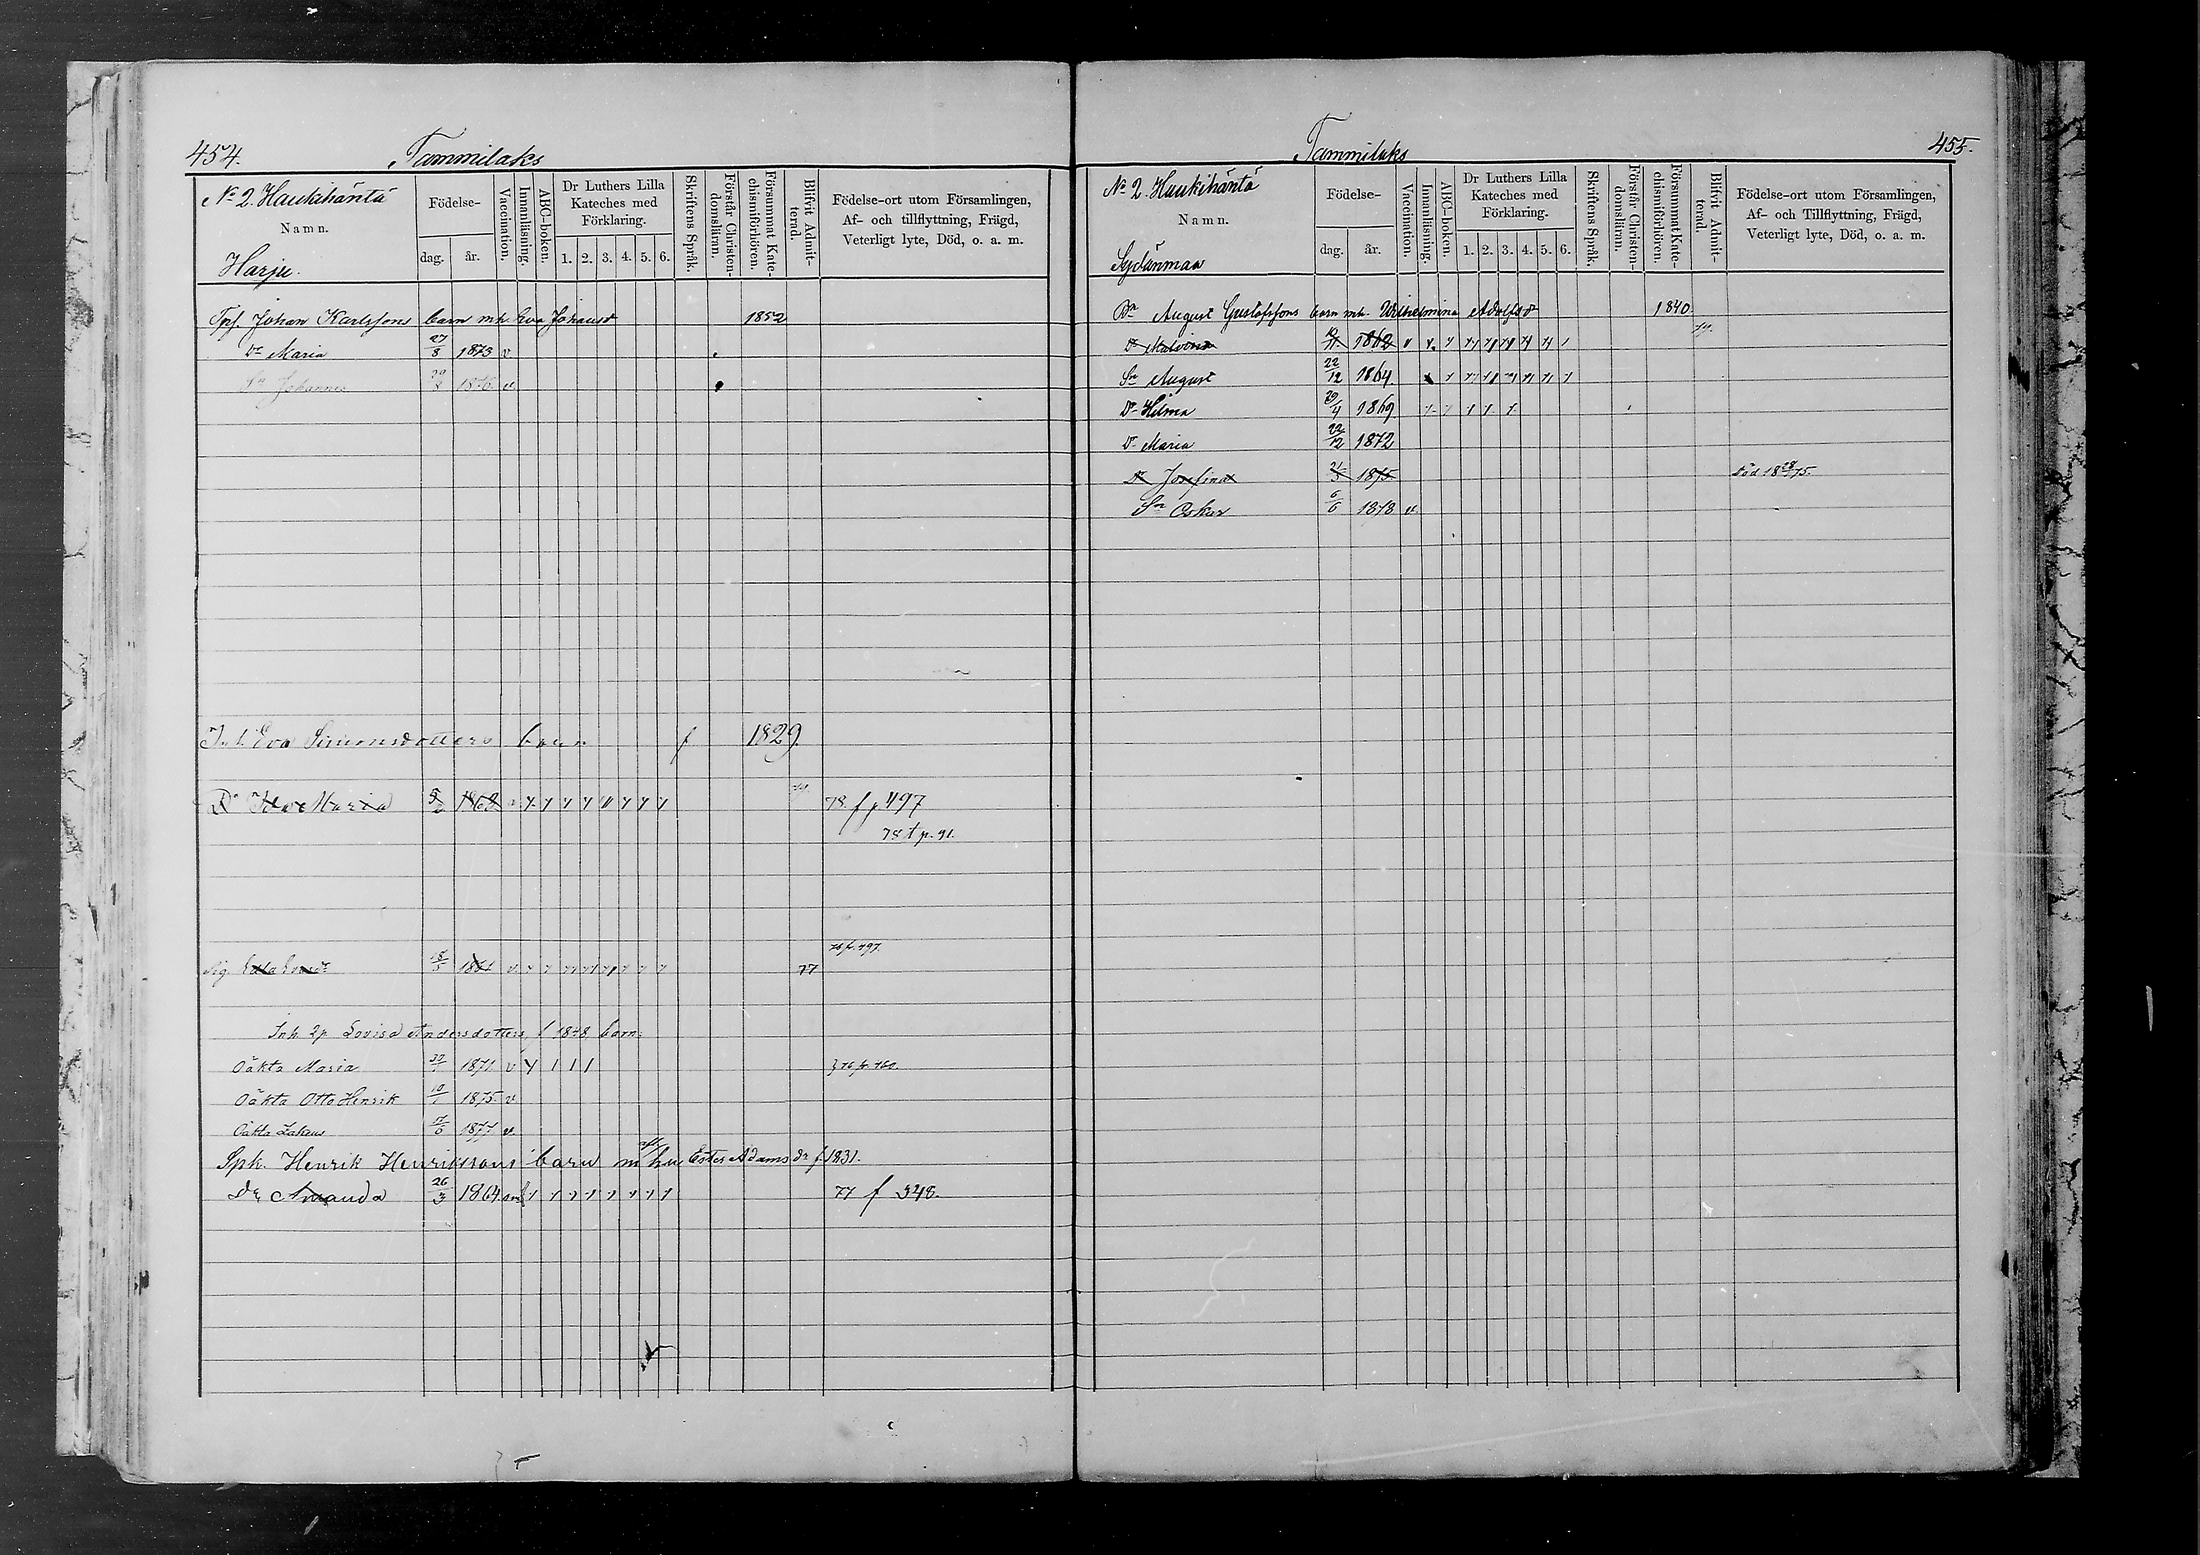 454.
Tammilaks
No 2. Haukihäntä
Namn.
Harju.
Födelse-
dag.
år.
Vaccination.
Innanläsning.
ABC-boken.
Dr Luthers Lilla
Kateches med
Förklaring.
1. 2. 3. 4. 5. 6.
Skriftens Språk.
Förstår Christen-
domsläran.
Försummat Kate-
chismiförhören.
Blifvit Admit-
terad.
Födelse-ort utom Församlingen,
Af- och tillflyttning, Frägd,
Veterligt lyte, Död, o. a. m.
Johan Karlssons barn mh Eva Johansd 1852
Dr Maria 27/8 1873 v
Sn Johannes 29/8 1876 v
Eva Simonsdotters barn f 1829.
Dr Ida Maria 1862 78. f p 497
78 t p. 91.
76 fr. 497.
Pig. 18/5 1861 77
Inh. 2p Lovisa Andersdotters f 1848 barn:
Oäkta Maria 1871 v
Oäkta Otto Henrik 1875 v
Oäkta 17/6 1877 v.
Sph. Henrik Henrikssons barn m hu Ester Adams dr f 1831.
Dr Amanda 26/3 1864 77 f 348.
Tammilaks
455.
No 2. Haukihäntä
Namn.
Sydänmaa
Födelse-
dag.
år.
Vaccination.
Innanläsning.
ABC-boken.
Dr Luthers Lilla
Kateches med
Förklaring.
1. 2. 3. 4. 5. 6.
Skriftens Språk.
Förstår Christen-
domsläran.
Försummat Kate-
chismiförhören.
Blifvit Admit-
terad.
Födelse-ort utom Församlingen,
Af- och Tillflyttning, Frägd,
Veterligt lyte, Död, o. a. m.
August Gustafssons barn mh. Wilhelmina Adolfsdr 1840
Dr Malvina 1862
Sn August 22/12 1864
Dr Hilma 29/4 1869
Dr Maria 22/12 1872
Dr Josefina 1875 Död
Sn Oskar 6/6 1878 v